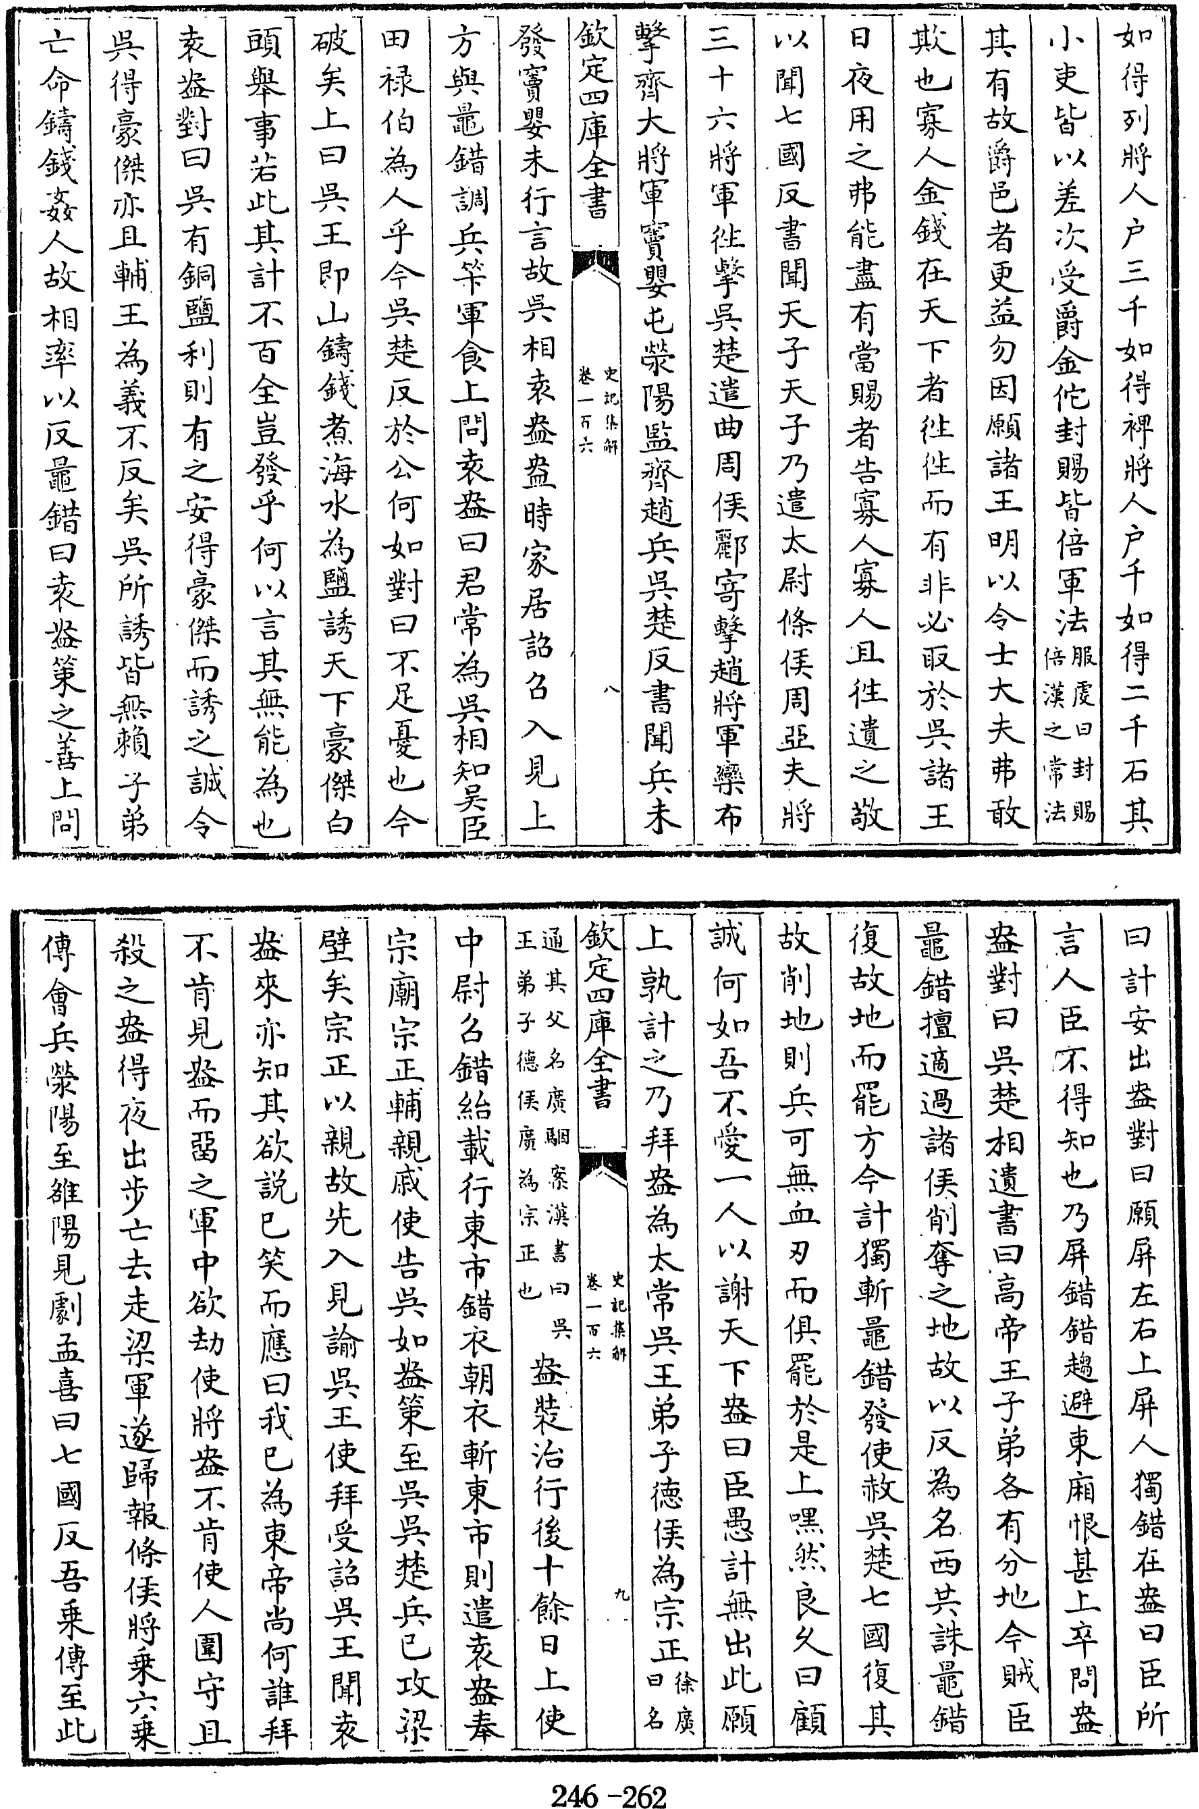 如得列將人户三千如得裨將人户千如得二千石其
小吏皆以差次受爵金佗封賜皆倍軍法服䖍曰封賜倍漢之常法
其有故爵邑者更益勿因願諸王明以令士大夫弗敢
欺也寡人金錢在天下者徃徃而有非必取於吳諸王
日夜用之弗能盡有當賜者告寡人寡人且徃遺之敬
以聞七國反書聞天子天子乃遣太尉條侯周亞夫將
三十六將軍徃擊吳楚遣曲周侯酈寄擊趙將軍欒布
擊齊大將軍竇嬰屯滎陽監齊趙兵吳楚反書聞兵未
欽定四庫全書 史記集解卷一百六 八
發竇嬰未行言故吳相袁盎盎時家居詔召入見上
方與鼂錯調兵笇軍食上問袁盎曰君常為吳相知吴臣
田禄伯為人乎今吳楚反於公何如對曰不足憂也今
破矣上曰吳王即山鑄錢煮海水為鹽誘天下豪傑白
頭舉事若此其計不百全豈發乎何以言其無能為也
袁盎對曰吳有銅鹽利則有之安得豪傑而誘之誠令
吳得豪傑亦且輔王為義不反矣吳所誘皆無賴子弟
亡命鑄錢姦人故相率以反鼂錯曰袁盎策之善上問
曰計安出盎對曰願屏左右上屏人獨錯在盎曰臣所
言人臣不得知也乃屏錯錯趨避東廂恨甚上卒問盎
盎對曰吳楚相遺書曰高帝王子弟各有分地今賊臣
鼂錯擅適過諸侯削奪之地故以反為名西共誅鼂錯
復故地而罷方今計獨斬鼂錯發使赦吳楚七國復其
故削地則兵可無血刃而俱罷於是上嘿然良久曰顧
誠何如吾不愛一人以謝天下盎曰臣愚計無出此願
上孰計之乃拜盎為太常吳王弟子德侯為宗正徐廣曰名
欽定四庫全書 史記集解卷一百六 九
通其父名廣駰案漢書曰吳王弟子德侯廣為宗正也 盎裝治行後十餘日上使
中尉召錯紿載行東市錯衣朝衣斬東市則遣袁盎奉
宗廟宗正輔親戚使告吳如盎策至吳吳楚兵已攻梁
壁矣宗正以親故先入見諭吳王使拜受詔吳王聞袁
盎來亦知其欲說已笑而應曰我已為東帝尚何誰拜
不肯見盎而留之軍中欲劫使將盎不肯使人圍守且
殺之盎得夜出步亡去走梁軍遂歸報條侯將乗六乗
傳會兵滎陽至雒陽見劇孟喜曰七國反吾乗傳至此
246-262